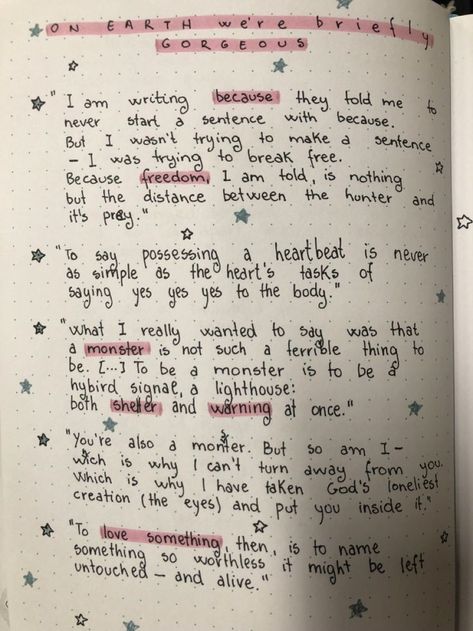 ON EARTH we're briefly
GORGEOUS
"I am writing because they told me to
never start a sentence with because.
But I wasn't trying to make a sentence
– I was trying to break free.
Because freedom, I am told, is nothing
but the distance between the hunter and
it's prey."
"To say possessing a heartbeat is never
as simple as the heart's tasks of
saying yes yes yes to the body."
"What I really wanted to say was that
a monster is not such a terrible thing to
be. [...] To be a monster is to be a
hybird signal, a lighthouse:
both shelter and warning at once."
"You're also a monster. But so am I –
wich is why I can't turn away from you.
Which is why I have taken God's loneliest
creation (the eyes) and put you inside it."
"To love something, then, is to name
something so worthless it might be left
untouched – and alive."